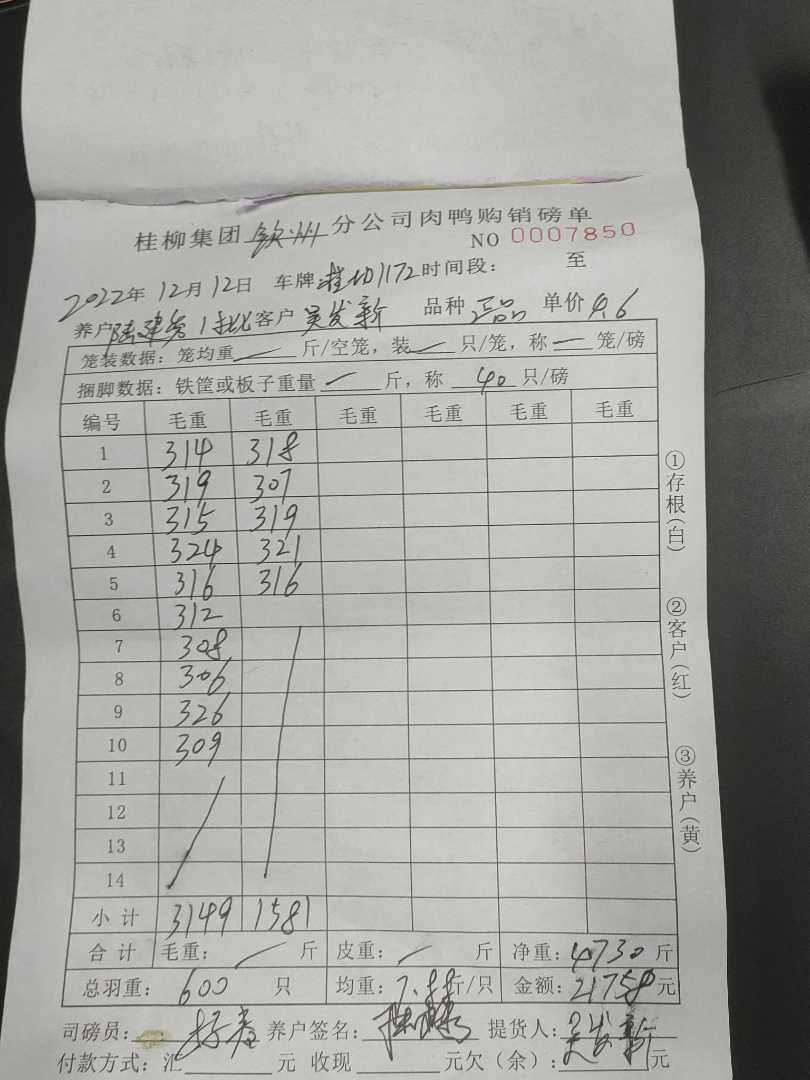 桂柳集团钦州分公司肉鸭购销磅单
NO 0007850
2022年12月12日 车牌:桂 1172时间段: 至
养户 1批 客户 吴发新 品种 正品 单价 4.6
笼装数据: 笼均重 — 斤/空笼, 装 — 只/笼, 称 — 笼/磅
捆脚数据: 铁筐或板子重量 — 斤, 称 40 只/磅
编号 毛重 毛重 毛重 毛重 毛重 毛重
1 314 318
2 319 307
3 315 319
4 324 321
5 316 316
6 312
7 308
8 306
9 326
10 309
11
12
13
14
小计 3149 1581
合计 毛重: — 斤 皮重: — 斤 净重: 4730 斤
总羽重: 600 只 均重: 7.88斤/只 金额: 21758元
司磅员: 养户签名: 提货人: 吴发新
付款方式: 汇 元 收现 元欠(余): 元
①存根(白)
②客户(红)
③养户(黄)